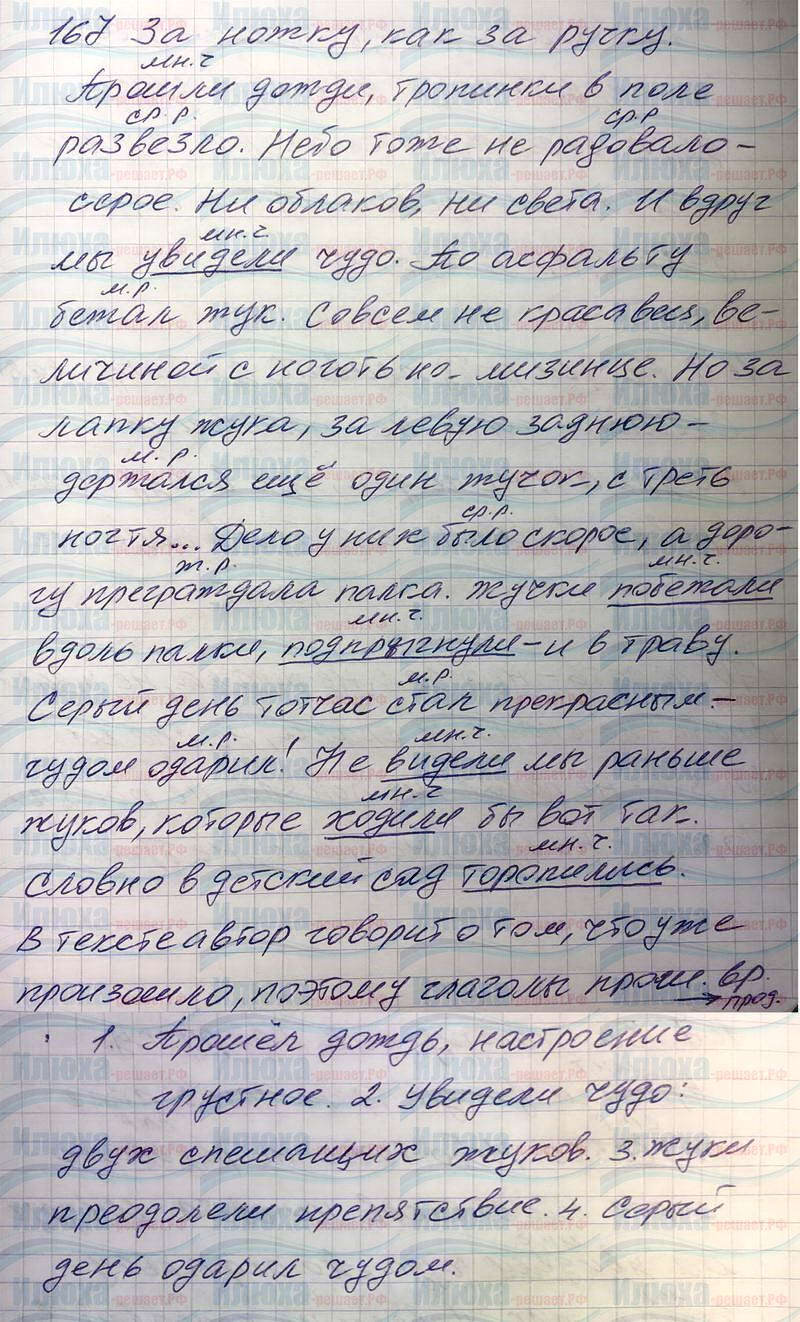 167 За ножку, как за ручку.
мн.ч
Прошли дожди, тропинки в поле
ср.р. ср.р
развезло. Небо тоже не радовало-
серое. Ни облаков, ни света. И вдруг
мн.ч.
мы увидели чудо. По асфальту
м.р.
бежал жук. Совсем не красавец, ве-
личиной с ноготь на мизинце. Но за
лапку жука, за левую заднюю-
м.р.
держался ещё один жучок, с треть
ср.р.
ногтя... Дело у них было скорое, а доро-
ж.р. мн.ч.
гу преграждала палка. Жучки побежали
мн.ч.
вдоль палки, подпрыгнули-и в траву.
м.р.
Серый день тотчас стал прекрасным.-
м.р. мн.ч.
чудом одарил! Не видели мы раньше
мн.ч
жуков, которые ходили бы вот так.
мн.ч.
Словно в детский сад торопились.
В тексте автор говорит о том, что уже
произошло, поэтому глаголы прош. вр.
→прод.
1. Прошёл дождь, настроение
грустное. 2. Увидели чудо:
двух спешащих жуков. 3. Жуки
преодолели препятствие. 4. Серый
день одарил чудом.
Илюха
-решает.РФ